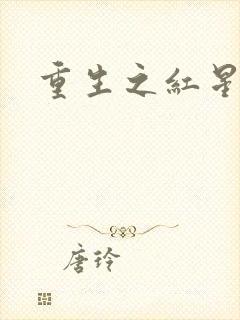 重生之紅星
唐玲